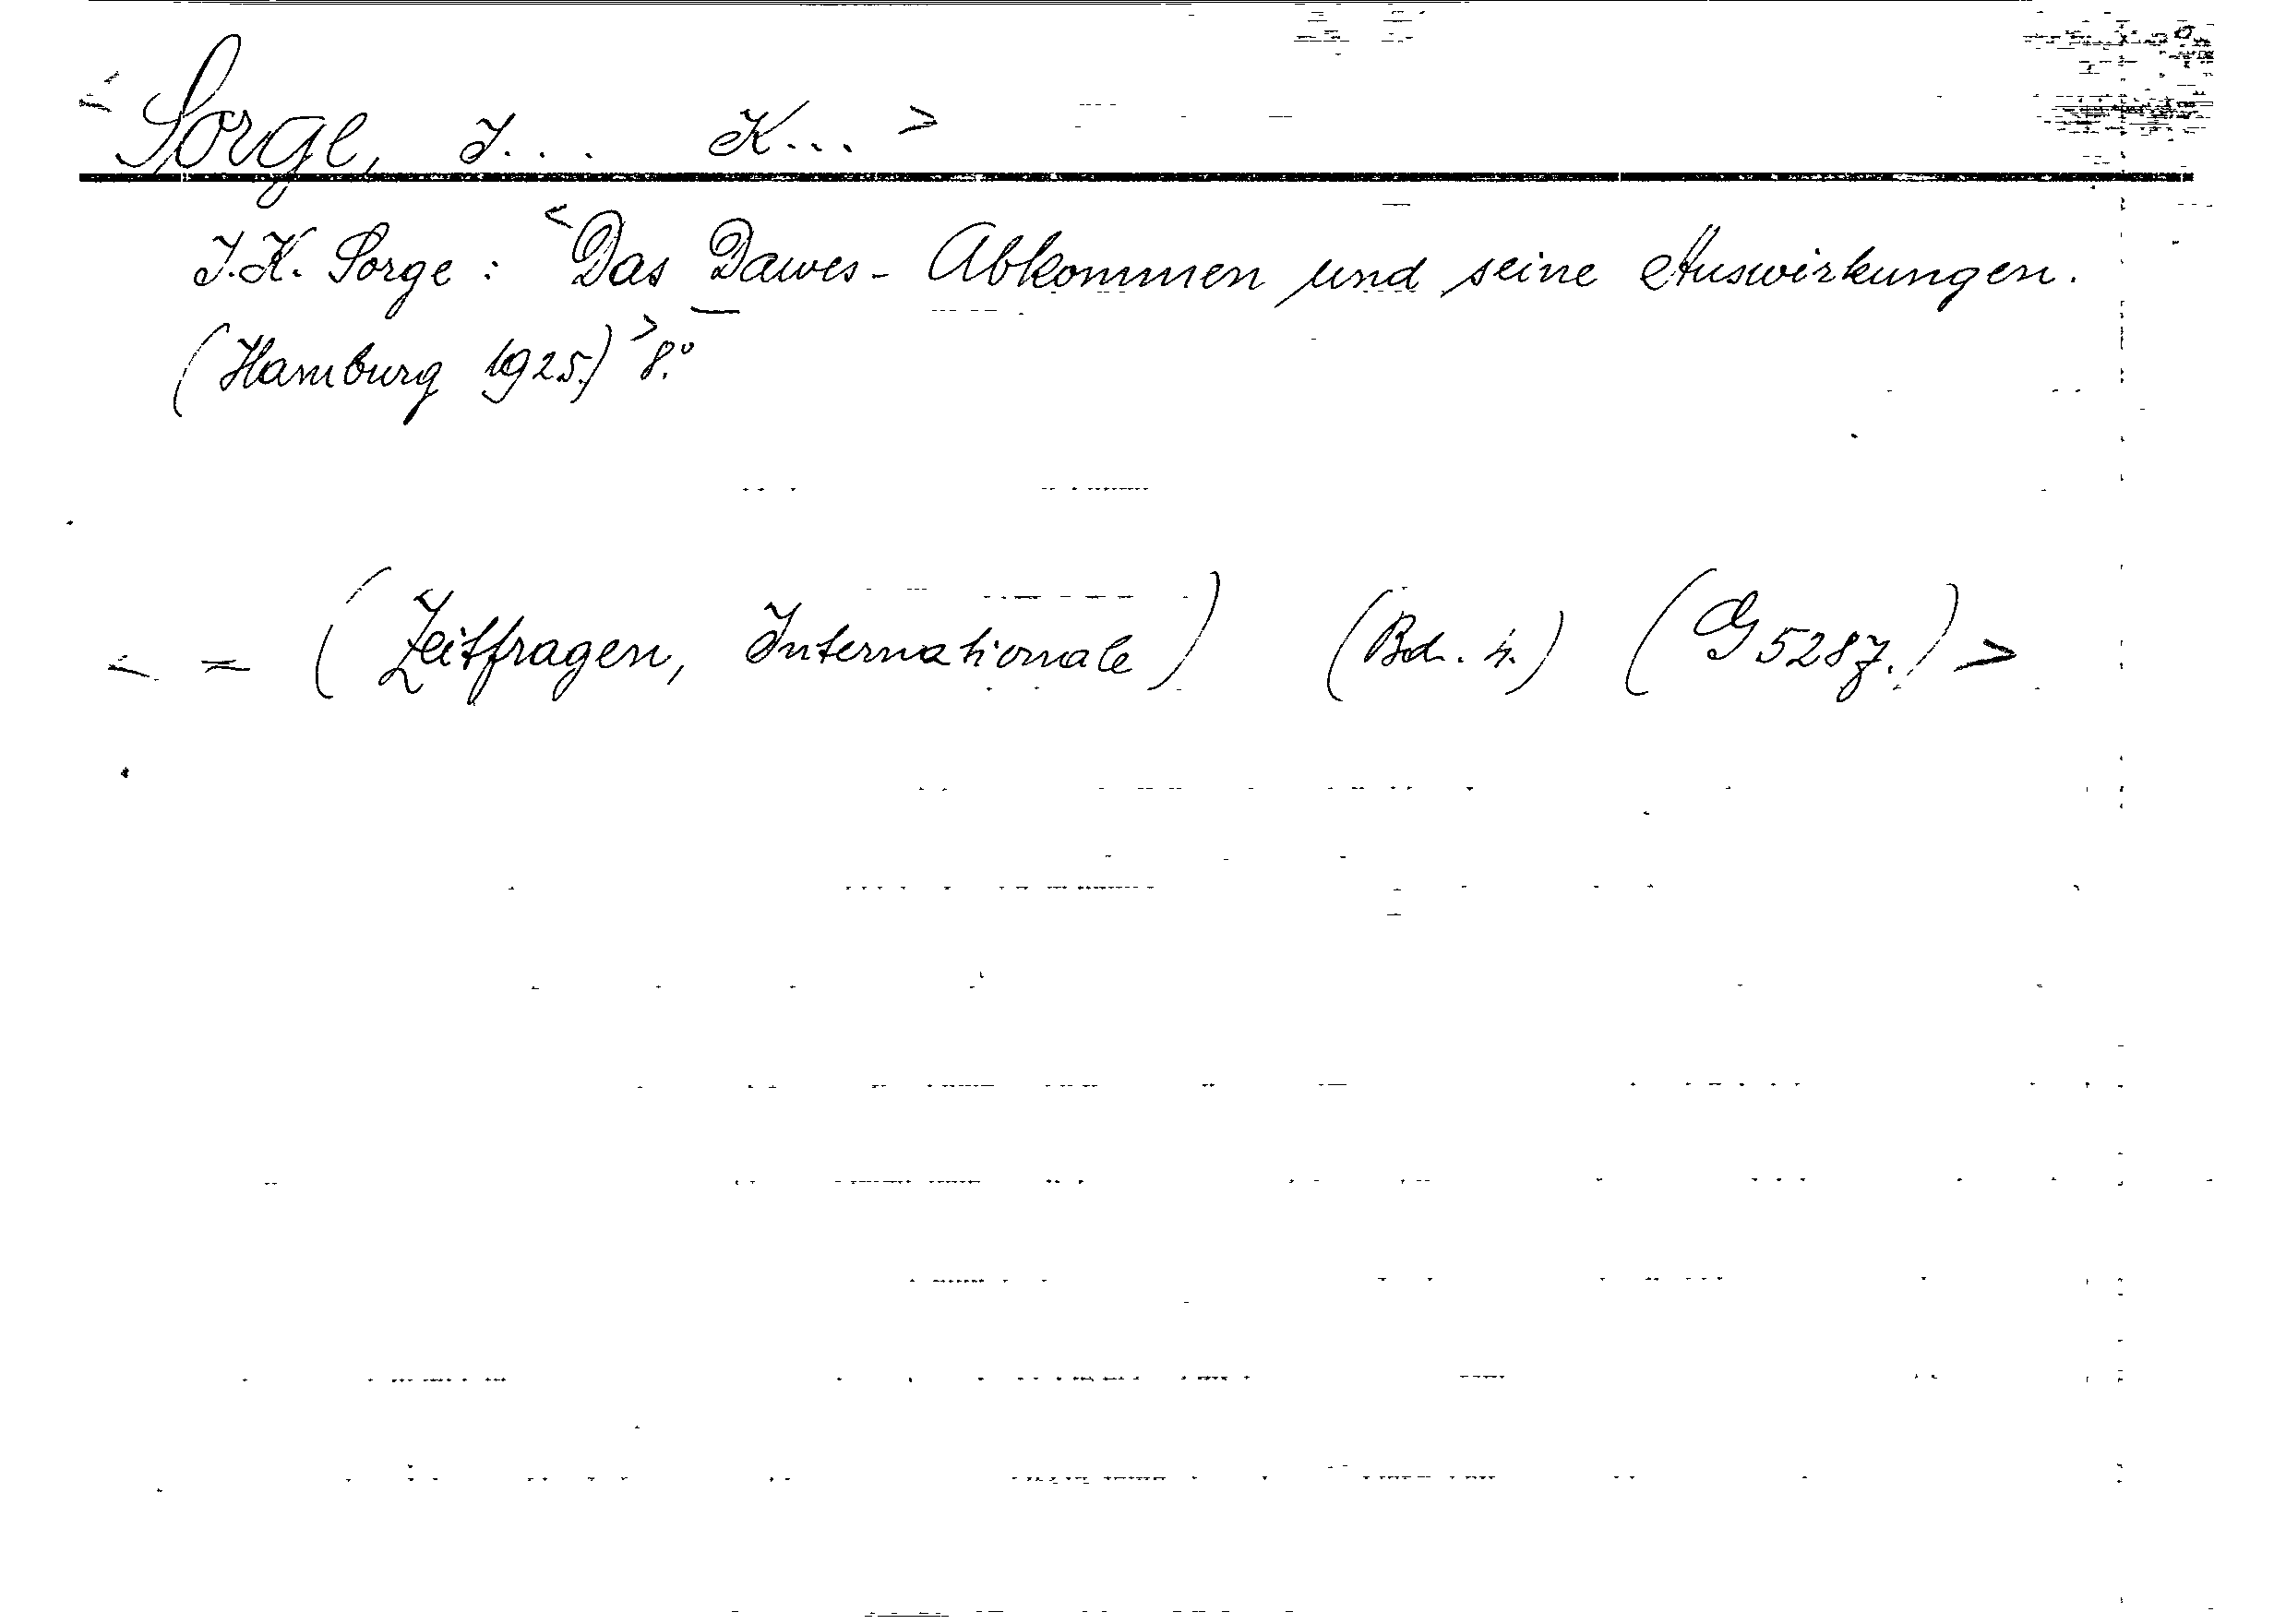 <Sorge, J... K...>
J.K. Sorge: <Das Dawes-Abkommen und seine Auswirkungen.
(Hamburg 1925.)> 8.°
< = (Zeitfragen, Internationale) (Bd. 4.) (G 5287.)>